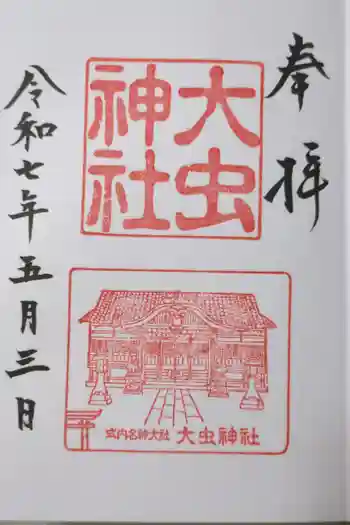 奉拝
大虫
神社
式内名神大社 大虫神社
令和七年五月三日